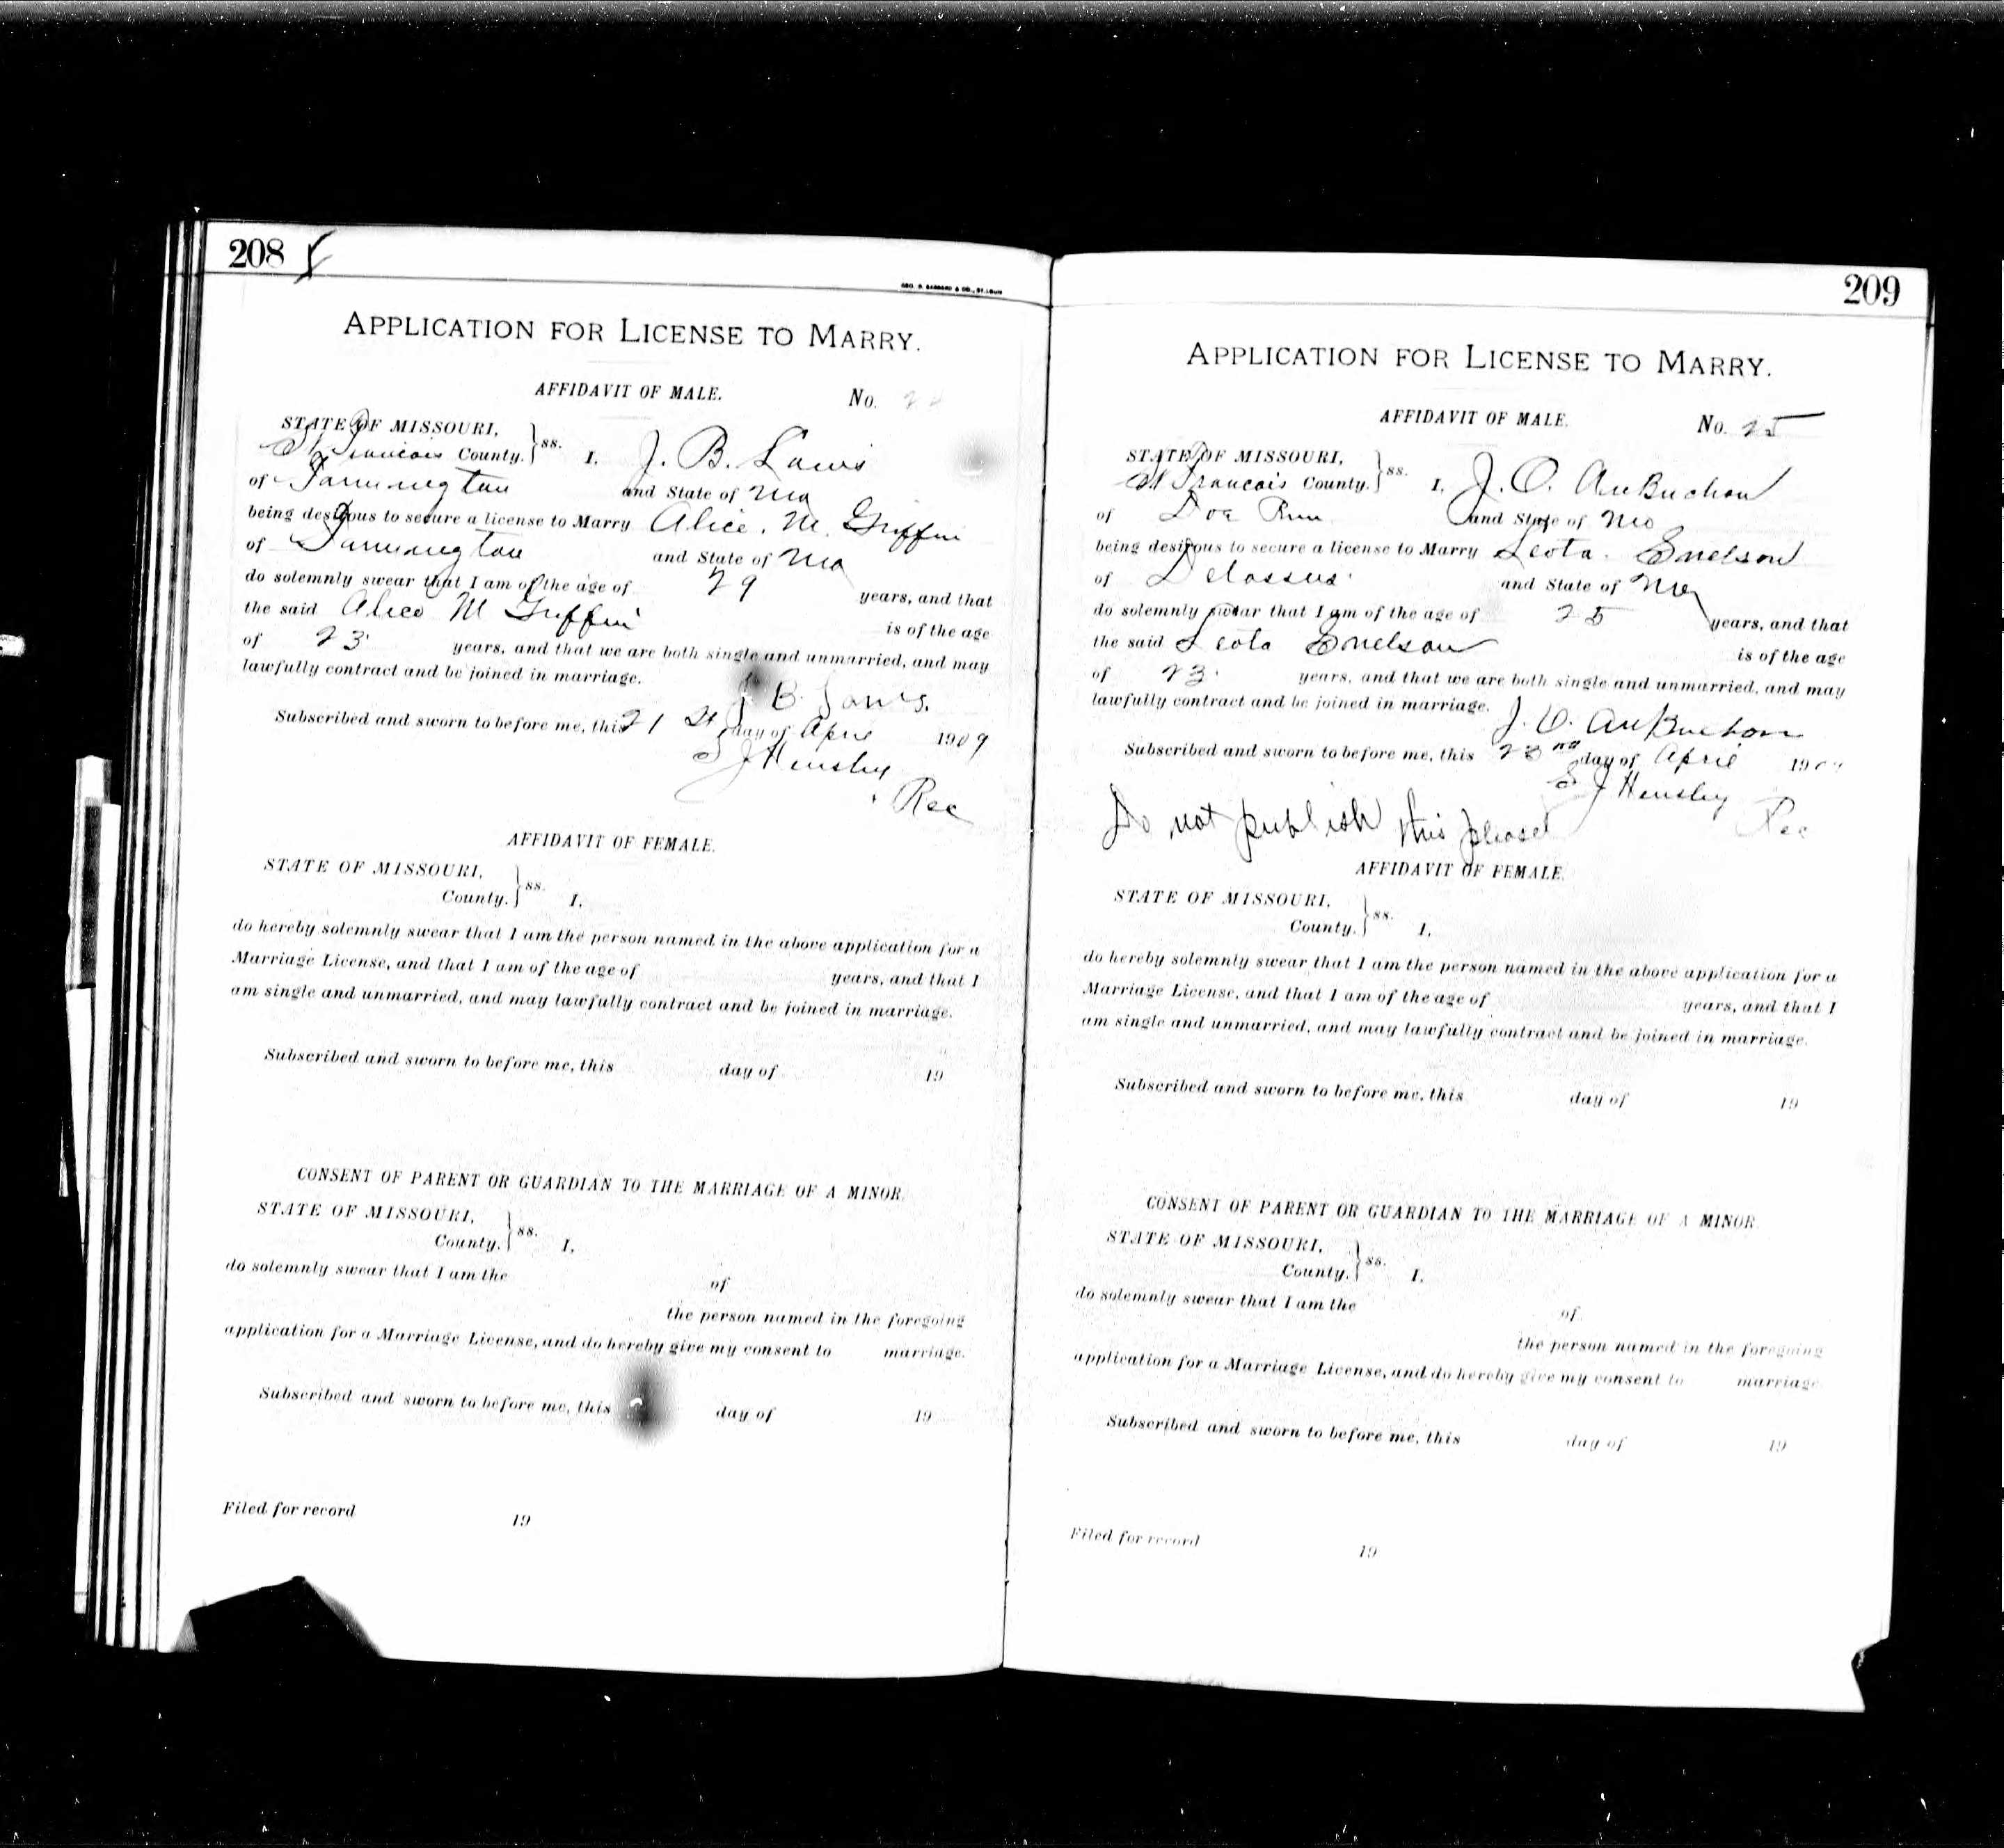 208
GEO. D. BARNARD & CO., ST. LOUIS
APPLICATION FOR LICENSE TO MARRY.
AFFIDAVIT OF MALE. No.
STATE OF MISSOURI,
St Francois County. } ss. I, J. B. Laws
of Farmington and State of Mo
being desirous to secure a license to Marry Alice. M. Griffin
of Farmington and State of Mo
do solemnly swear that I am of the age of 29 years, and that
the said Alice M Griffin is of the age
of 23 years, and that we are both single and unmarried, and may
lawfully contract and be joined in marriage.
J. B. Laws.
Subscribed and sworn to before me, this 21 St day of April 1909
S J Hensley
Rec
AFFIDAVIT OF FEMALE.
STATE OF MISSOURI,
County. } ss. I,
do hereby solemnly swear that I am the person named in the above application for a
Marriage License, and that I am of the age of years, and that I
am single and unmarried, and may lawfully contract and be joined in marriage.
Subscribed and sworn to before me, this day of 19
CONSENT OF PARENT OR GUARDIAN TO THE MARRIAGE OF A MINOR.
STATE OF MISSOURI,
County. } ss. I,
do solemnly swear that I am the of
the person named in the foregoing
application for a Marriage License, and do hereby give my consent to marriage.
Subscribed and sworn to before me, this day of 19
Filed for record 19
209
APPLICATION FOR LICENSE TO MARRY.
AFFIDAVIT OF MALE. No. 25
STATE OF MISSOURI,
St Francois County. } ss. I, J. O. AuBuchon
of Doe Run and State of Mo
being desirous to secure a license to Marry Leota. Snelson
of Delassus and State of Mo
do solemnly swear that I am of the age of 25 years, and that
the said Leota Snelson is of the age
of 23 years, and that we are both single and unmarried, and may
lawfully contract and be joined in marriage.
J. O. AuBuchon
Subscribed and sworn to before me, this 23 day of April 190
S J Hensley
Rec
Do not publish this please
AFFIDAVIT OF FEMALE.
STATE OF MISSOURI,
County. } ss. I,
do hereby solemnly swear that I am the person named in the above application for a
Marriage License, and that I am of the age of years, and that I
am single and unmarried, and may lawfully contract and be joined in marriage.
Subscribed and sworn to before me, this day of 19
CONSENT OF PARENT OR GUARDIAN TO THE MARRIAGE OF A MINOR.
STATE OF MISSOURI,
County. } ss. I,
do solemnly swear that I am the of
the person named in the foregoing
application for a Marriage License, and do hereby give my consent to marriage.
Subscribed and sworn to before me, this day of 19
Filed for record 19